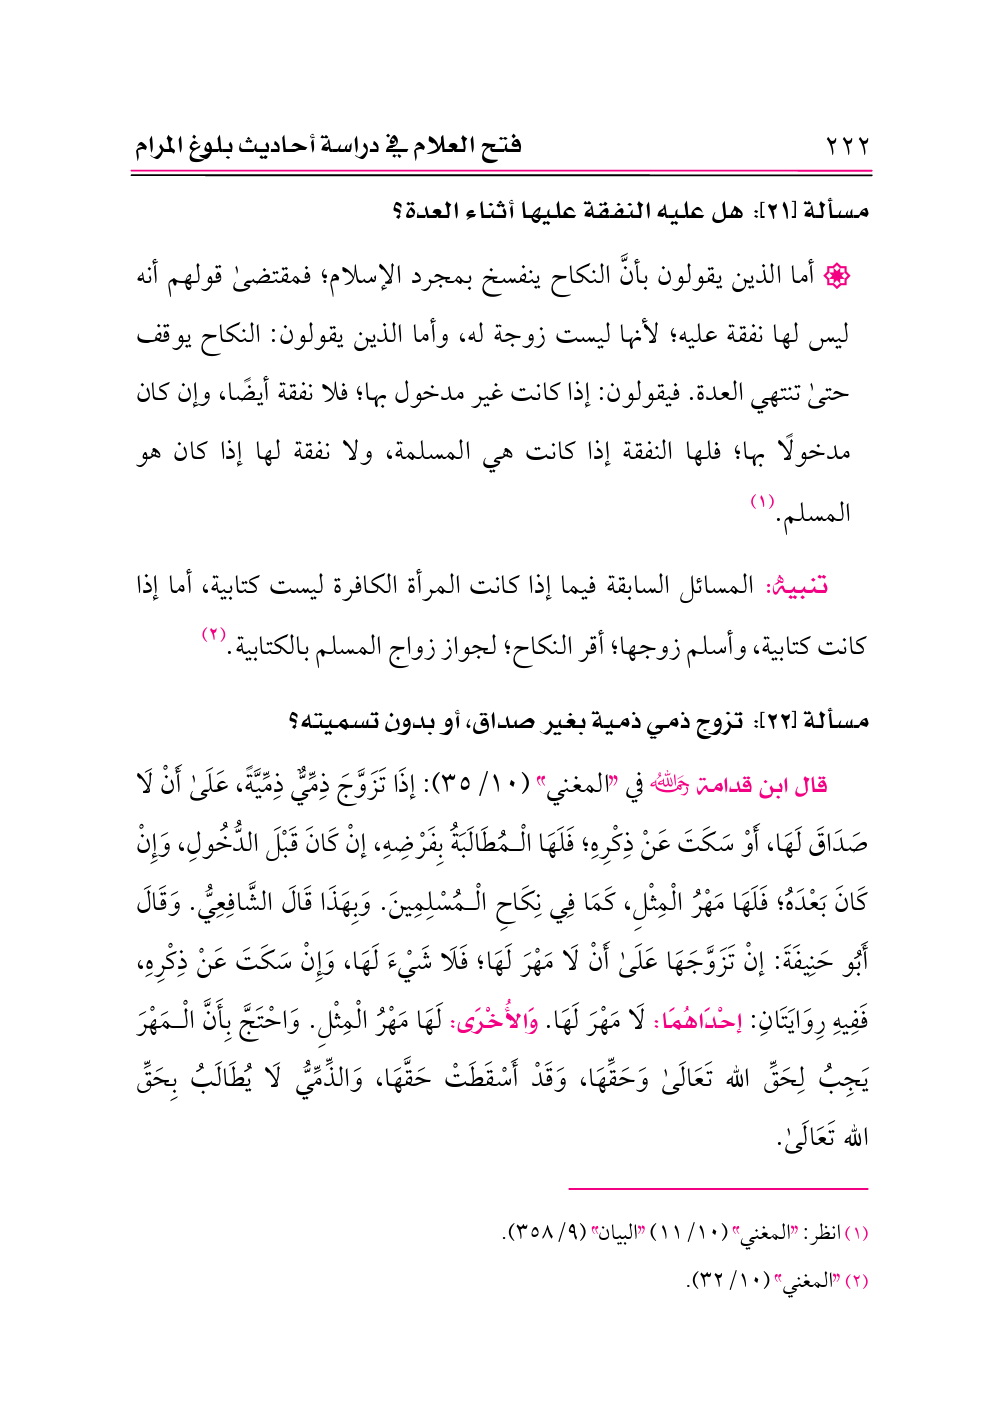 ٢٢٢ فتح العلام في دراسة أحاديث بلوغ المرام
مسألة [٢١]: هل عليه النفقة عليها أثناء العدة؟
أما الذين يقولون بأنَّ النكاح ينفسخ بمجرد الإسلام؛ فمقتضىٰ قولهم أنه
ليس لها نفقة عليه؛ لأنها ليست زوجة له، وأما الذين يقولون: النكاح يوقف
حتىٰ تنتهي العدة. فيقولون: إذا كانت غير مدخول بها؛ فلا نفقة أيضًا، وإن كان
مدخولًا بها؛ فلها النفقة إذا كانت هي المسلمة، ولا نفقة لها إذا كان هو
المسلم.(١)
تنبيهٌ: المسائل السابقة فيما إذا كانت المرأة الكافرة ليست كتابية، أما إذا
كانت كتابية، وأسلم زوجها؛ أقر النكاح؛ لجواز زواج المسلم بالكتابية.(٢)
مسألة [٢٢]: تزوج ذمي ذمية بغير صداق، أو بدون تسميته؟
قال ابن قدامة رحمه الله في "المغني" (١٠/ ٣٥): إذَا تَزَوَّجَ ذِمِّيٌّ ذِمِّيَّةً، عَلَىٰ أَنْ لَا
صَدَاقَ لَهَا، أَوْ سَكَتَ عَنْ ذِكْرِهِ؛ فَلَهَا الْـمُطَالَبَةُ بِفَرْضِهِ، إنْ كَانَ قَبْلَ الدُّخُولِ، وَإِنْ
كَانَ بَعْدَهُ؛ فَلَهَا مَهْرُ الْمِثْلِ، كَمَا فِي نِكَاحِ الْـمُسْلِمِينَ. وَبِهَذَا قَالَ الشَّافِعِيُّ. وَقَالَ
أَبُو حَنِيفَةَ: إنْ تَزَوَّجَهَا عَلَىٰ أَنْ لَا مَهْرَ لَهَا؛ فَلَا شَيْءَ لَهَا، وَإِنْ سَكَتَ عَنْ ذِكْرِهِ،
فَفِيهِ رِوَايَتَانِ: إحْدَاهُمَا: لَا مَهْرَ لَهَا. وَالأُخْرَى: لَهَا مَهْرُ الْمِثْلِ. وَاحْتَجَّ بِأَنَّ الْـمَهْرَ
يَجِبُ لِحَقِّ الله تَعَالَىٰ وَحَقِّهَا، وَقَدْ أَسْقَطَتْ حَقَّهَا، وَالذِّمِّيُّ لَا يُطَالَبُ بِحَقِّ
الله تَعَالَىٰ.
(١) انظر: "المغني" (١٠/ ١١) "البيان" (٩/ ٣٥٨).
(٢) "المغني" (١٠/ ٣٢).